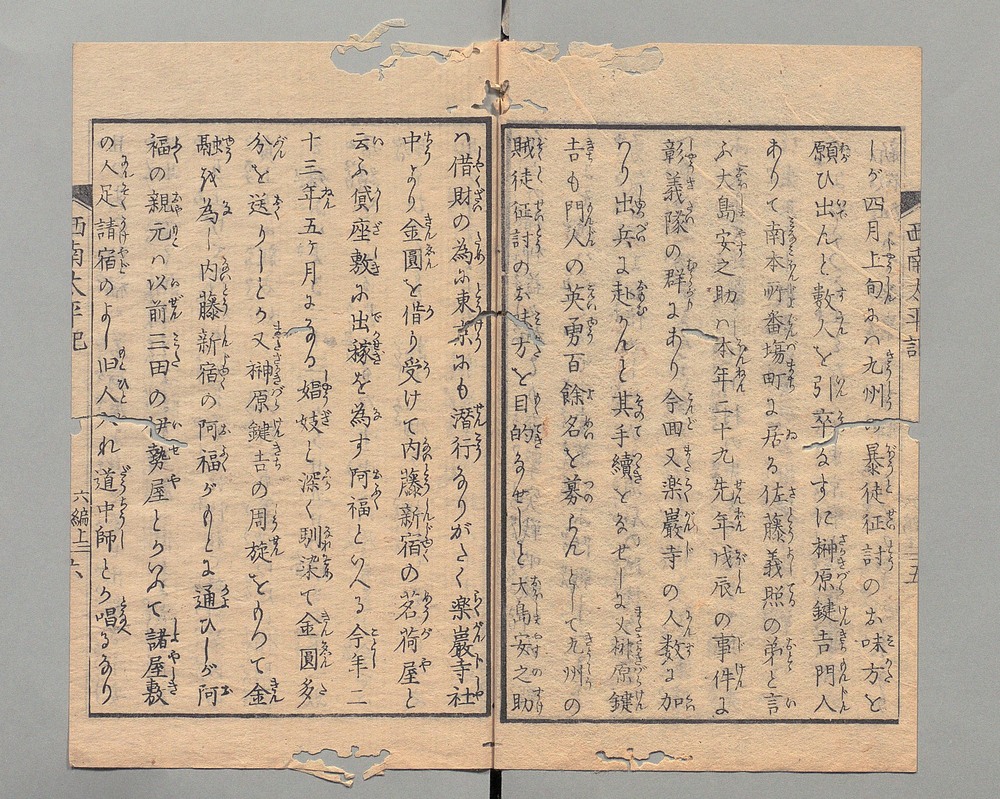 しが四月上旬に八九州の暴徒征討のお味方を
願ひ出んと数人を引卒なすに榊原鍵吉門人
ありて南本所番塲町に居る佐藤義照の弟と言
ふ大島安之助ハ本年二十九先年戊辰の事件に
彰義隊の群にあり今回又楽巖寺の人数に加
ハり出兵に赴かんと其手續をなせしに又榊原鍵
吉も門人の英勇百餘名を募らんとして九州の
賊徒征討のお味方を目的なせしと大島安之助
ハ借財の為に東京にも潜行なりがたく楽巖寺社
中より金圓を借り受けて内藤新宿の茗荷屋と
云ふ貸座敷に出稼を為す阿福といへる今年二
十三年五ヶ月になる娼妓と深く馴染て金圓多
分を送りしとか又榊原鍵吉の周旋をもつて金
融を為し内藤新宿の阿福がもとに通ひしが阿
福の親元ハ以前三田の伊勢屋とかいふて諸屋敷
の人足請宿のよし旧人入れ道中師とか唱るなり
西南太平記
六編上
六
五